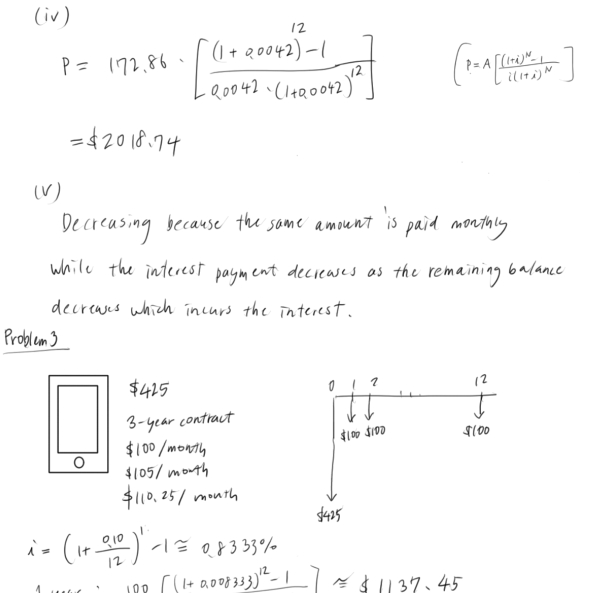 (iv)
P = 172.86 · [ (1 + 0.0042)^12 - 1 / 0.0042 · (1+0.0042)^12 ] ( P = A [ (1+i)^N - 1 / i(1+i)^N ]
= $2018.74
(v)
Decreasing because the same amount is paid monthly
while the interest payment decreases as the remaining balance
decreases which incurs the interest.
Problem 3
$425
3-year contract
$100/month
$105/month
$110.25/month
0 1 2 ... 12
$100 $100 $100
$425
i = (1 + 0.10/12)^1 - 1 ≅ 0.8333%
100 [ (1 + 0.008333)^12 - 1 ] ≈ $1137.45